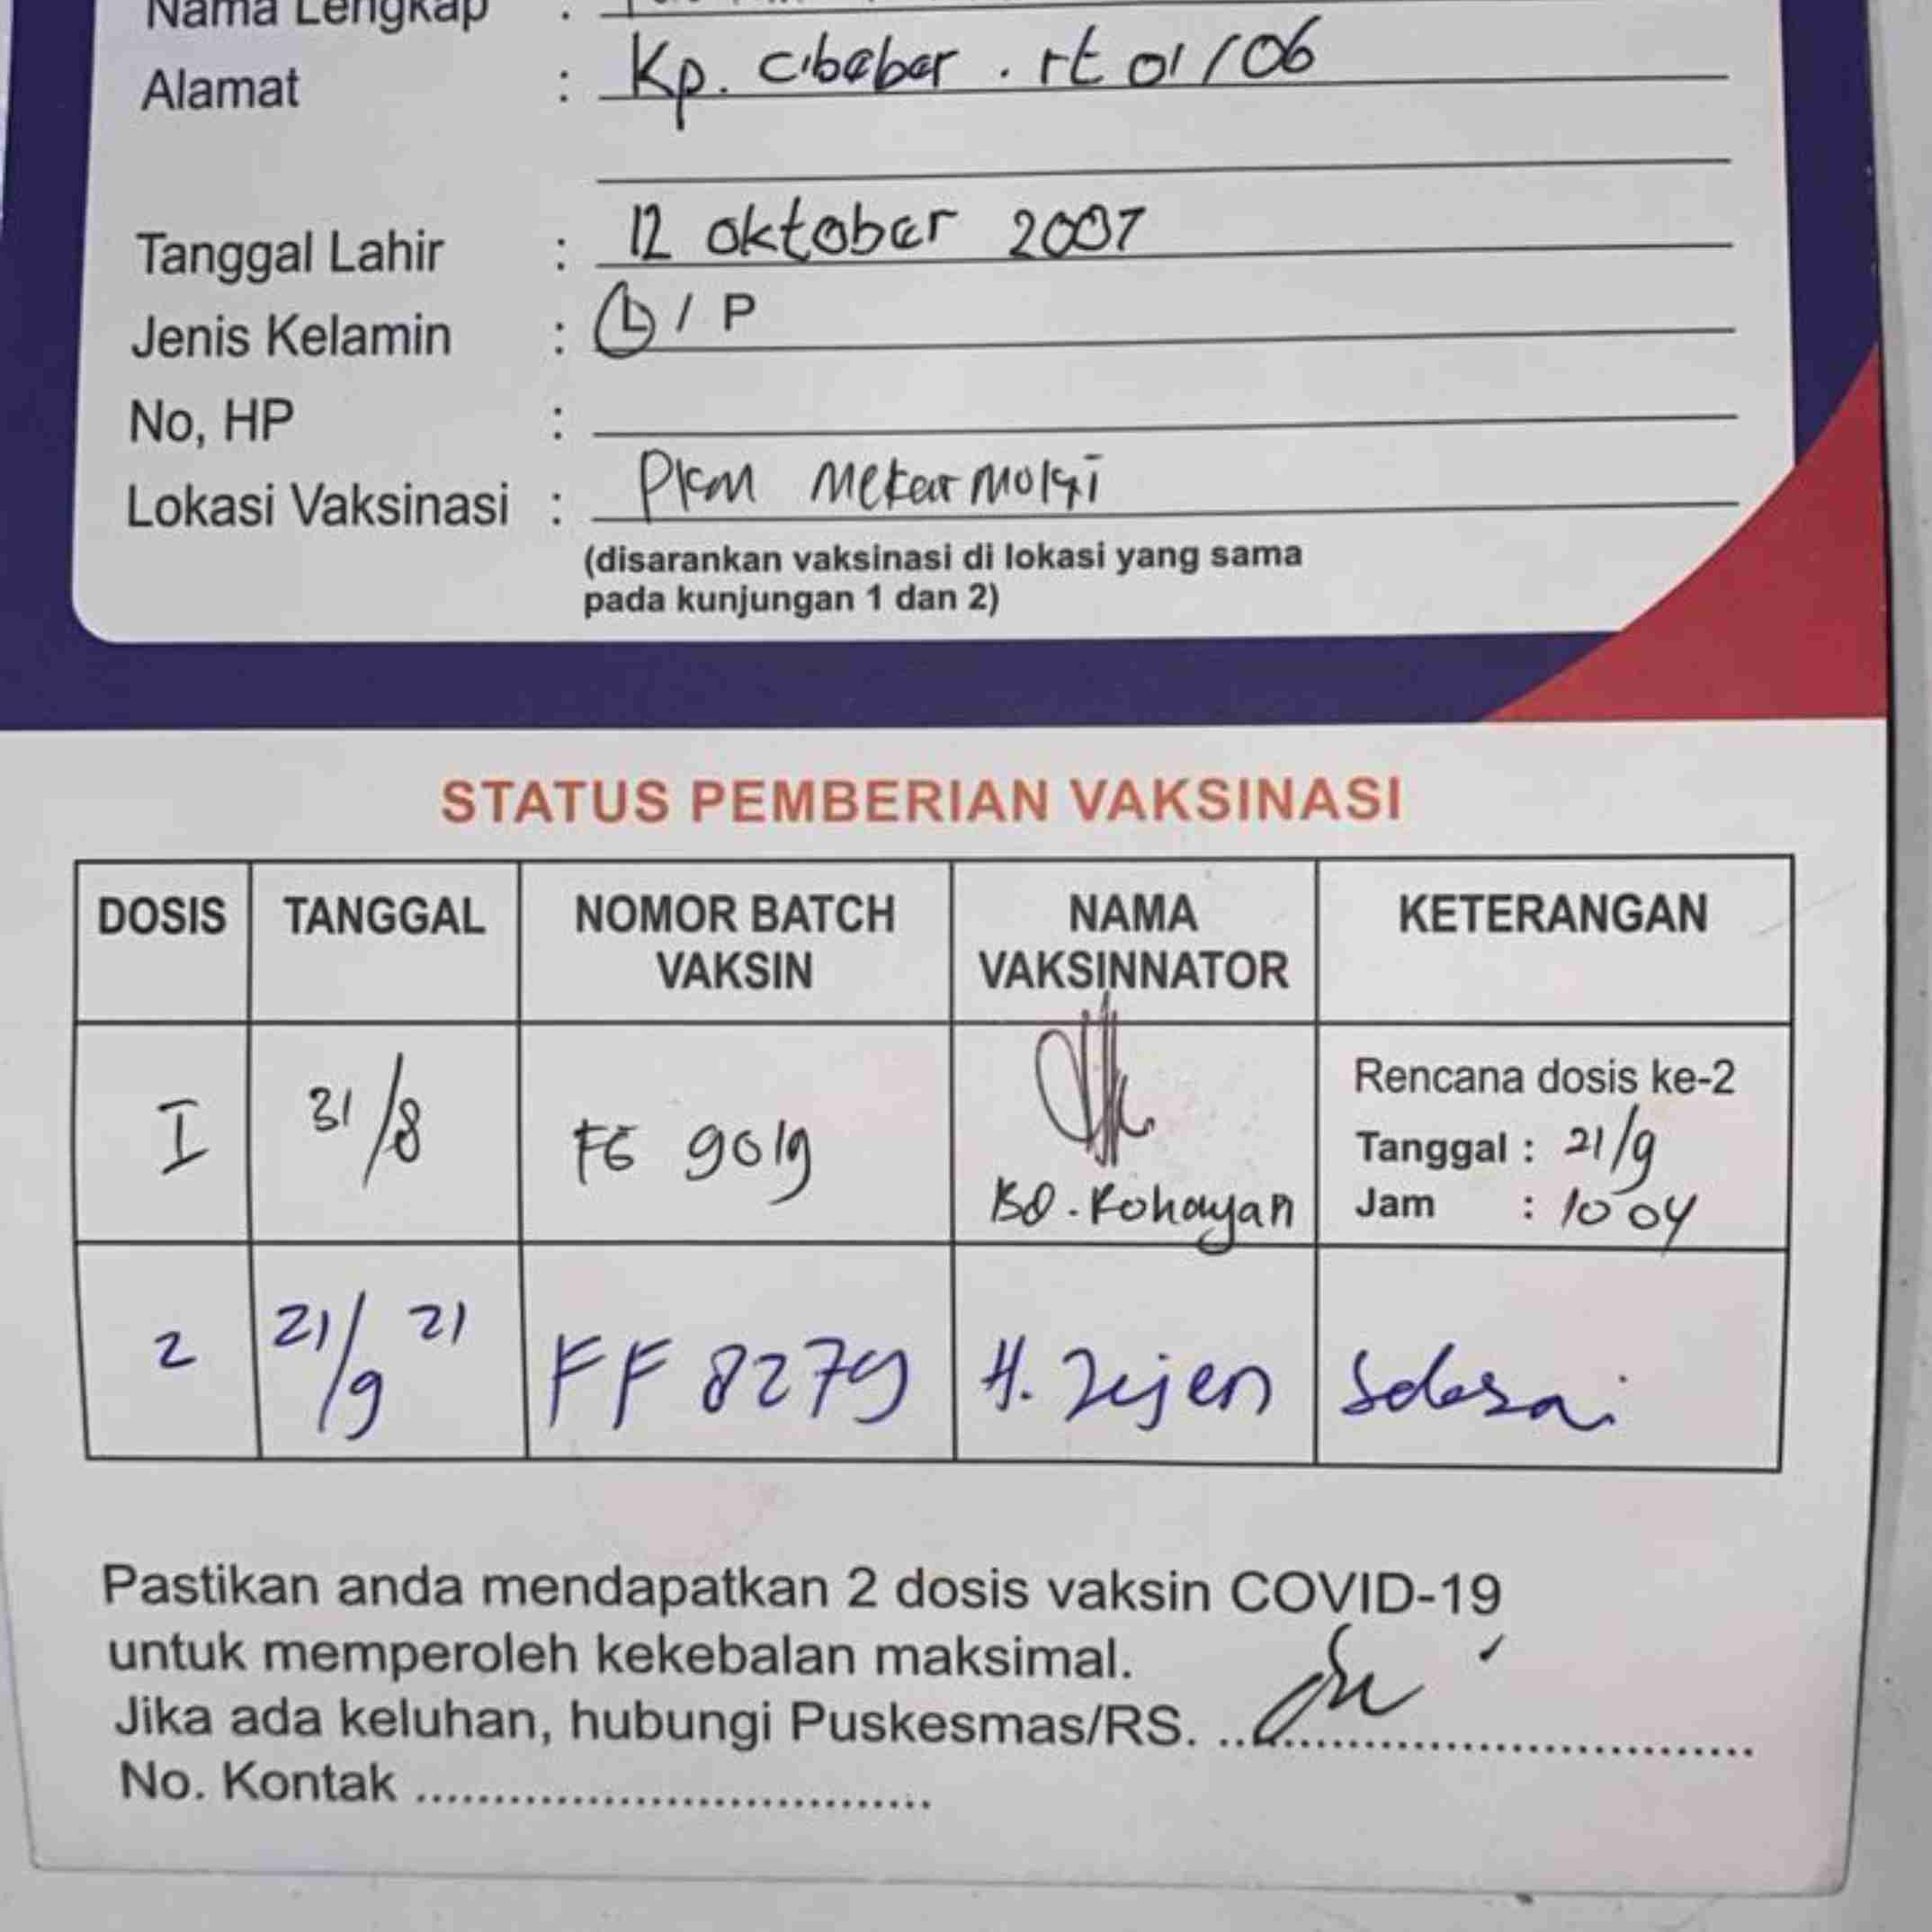 Nama Lengkap :
Alamat : Kp. cibeber . rt 01/06
Tanggal Lahir : 12 oktober 2007
Jenis Kelamin : L / P
No, HP :
Lokasi Vaksinasi : PKM Mekarmukti
(disarankan vaksinasi di lokasi yang sama
pada kunjungan 1 dan 2)
STATUS PEMBERIAN VAKSINASI
DOSIS TANGGAL NOMOR BATCH VAKSIN NAMA VAKSINNATOR KETERANGAN
I 31/8 FE 9019 BD. Rohayan Rencana dosis ke-2
Tanggal : 21/9
Jam : 10 04
2 21/9 21 FF 8279 H. Jejen Selesai
Pastikan anda mendapatkan 2 dosis vaksin COVID-19
untuk memperoleh kekebalan maksimal.
Jika ada keluhan, hubungi Puskesmas/RS. ..............................
No. Kontak ..............................